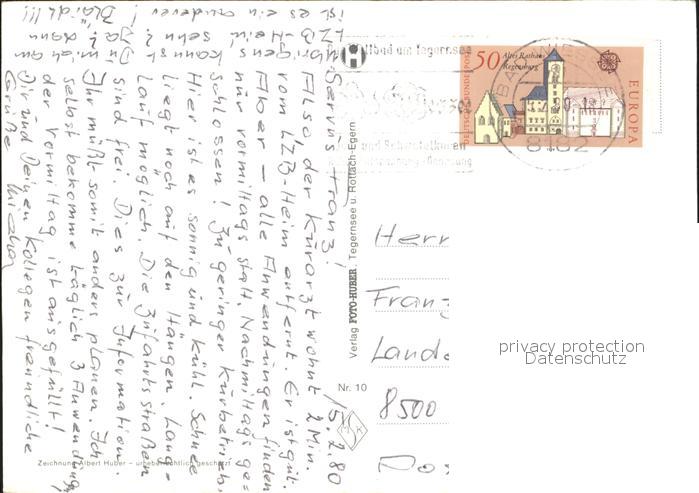 Servus Franz! 15.2.80
Also der Kurarzt wohnt 2 Min.
vom LZB-Heim entfernt. Er ist gut.
Aber – alle Anwendungen finden
nur vormittags statt. Nachmittags ge-
schlossen! Zu geringer Kurbetrieb.
Hier ist es sonnig und kühl. Schnee
liegt noch auf den Hängen. Lang-
lauf möglich. Die Zufahrtsstraßen
sind frei. Dies zur Information.
Ihr müßt somit anders planen. Ich
selbst bekomme täglich 3 Anwendung,
der Vormittag ist ausgefüllt!
Dir und Deinen Kollegen freundliche
Grüße
Übrigens kannst Du mich am
LZB-Heim sehn? Ja? dann
ist es ein anderer! Blädl!!!
Zeichnung Albert Huber – urheberrechtlich geschützt
Verlag FOTO-HUBER, Tegernsee u. Rottach-Egern
Nr. 10
Rund um Tegernsee
DEUTSCHE BUNDESPOST
50
Altes Rathaus
Regensburg
EUROPA
BAD WIESSEE
8182
Herr
Franz
Lande
8500
privacy protection
Datenschutz